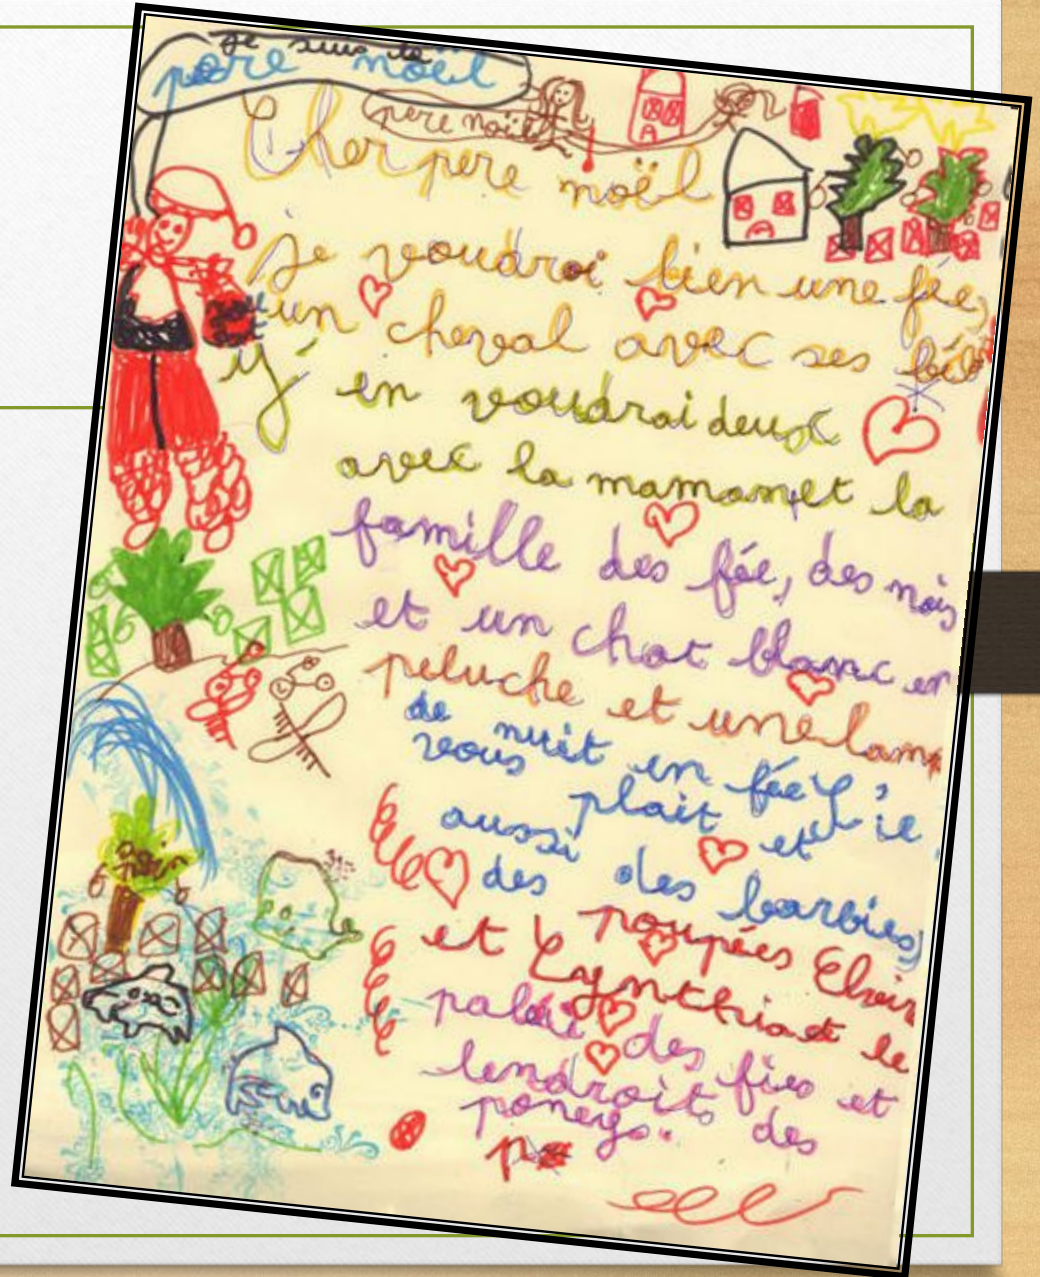 je suis le
pere noël
pere noël
Cher pere noël
je voudroi bien une fée,
un cheval avec ses
y'en voudrai deux
avec la maman et la
famille des fée, des
et un chat blanc en
peluche et une
de nuit en fée s'il
vous plait et
aussi des des barbies,
et poupées
Lynthia et le
palai des fées et
lendroits des
poneys..